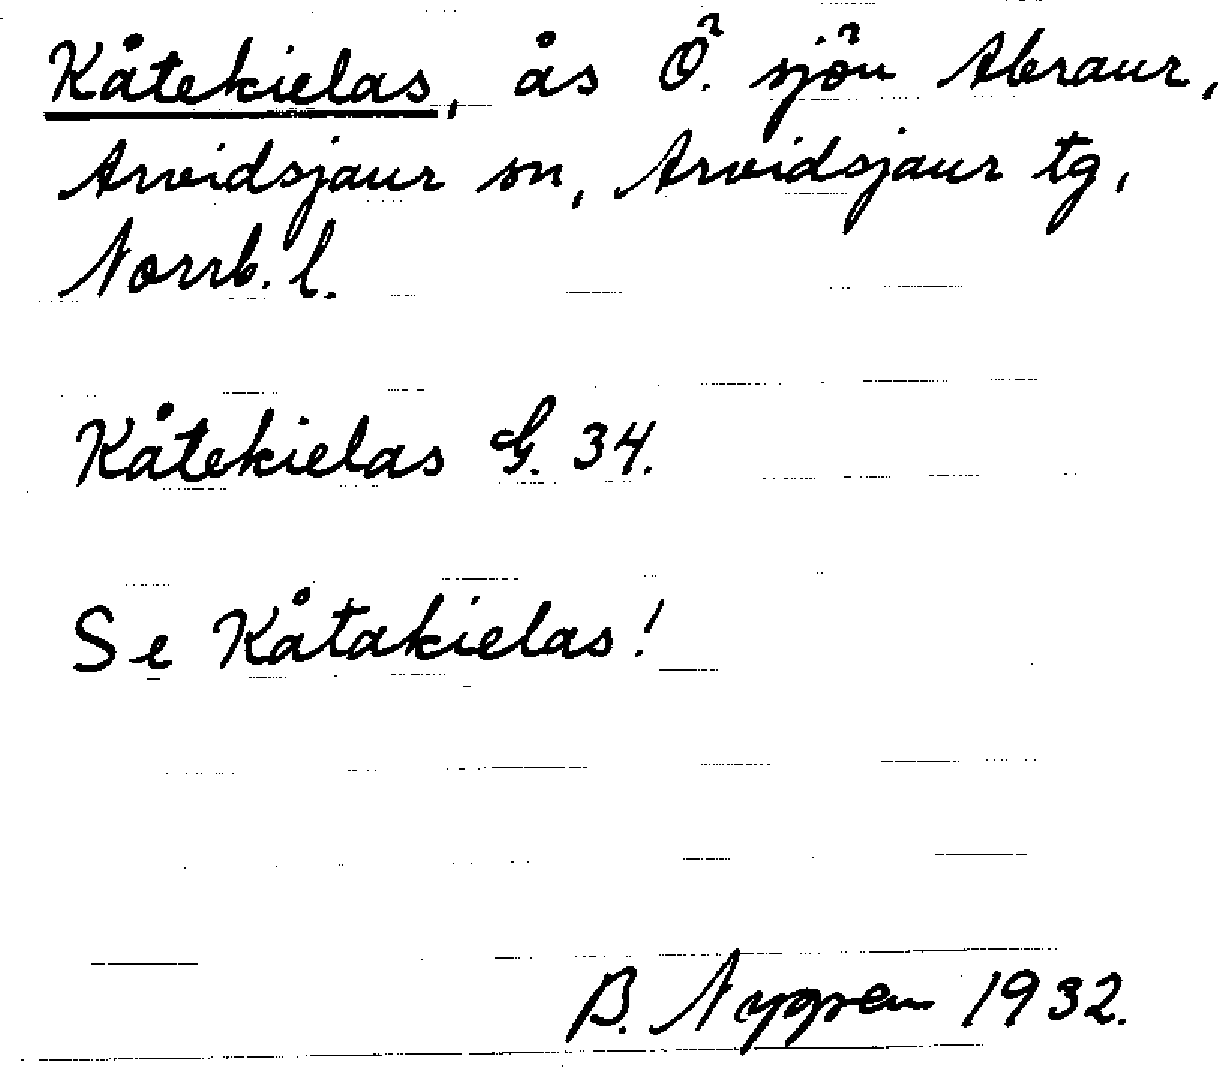 Kåtekielas, ås Ö. sjön Abraur,
Arvidsjaur sn, Arvidsjaur tg,
Norrb. l.
Kåtekielas G. 34.
Se Kåtakielas!
B. Nygren 1932.